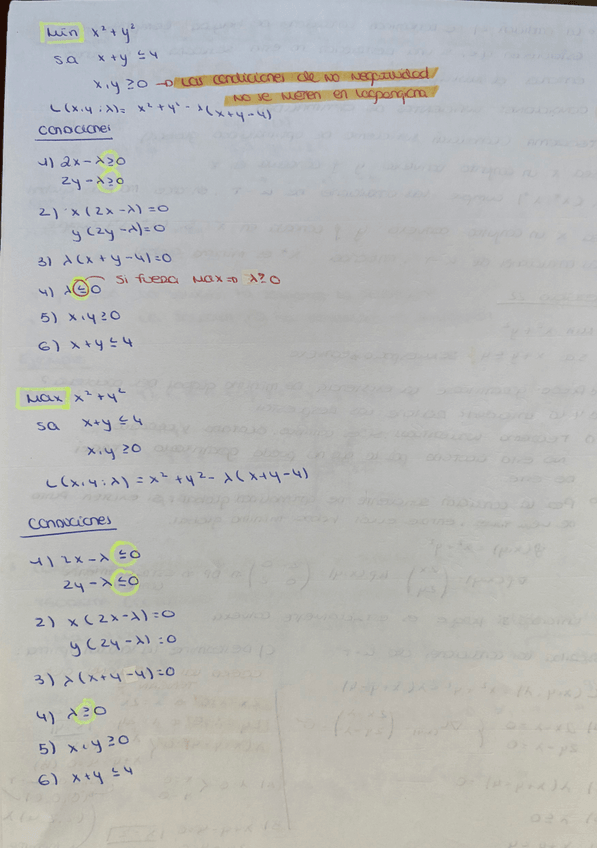 Min x² + y²
sa x + y ≤ 4
x, y ≥ 0 → Las condiciones de no negatividad
no se meten en lagrangiana
L(x, y ; λ) = x² + y² - λ(x + y - 4)
Condiciones
1) 2x - λ ≥ 0
2y - λ ≥ 0
2) x(2x - λ) = 0
y(2y - λ) = 0
3) λ(x + y - 4) = 0
4) λ ≤ 0 Si fuera Max ⇒ λ ≥ 0
5) x, y ≥ 0
6) x + y ≤ 4
Max x² + y²
sa x + y ≤ 4
x, y ≥ 0
L(x, y ; λ) = x² + y² - λ(x + y - 4)
Condiciones
1) 2x - λ ≤ 0
2y - λ ≤ 0
2) x(2x - λ) = 0
y(2y - λ) = 0
3) λ(x + y - 4) = 0
4) λ ≥ 0
5) x, y ≥ 0
6) x + y ≤ 4